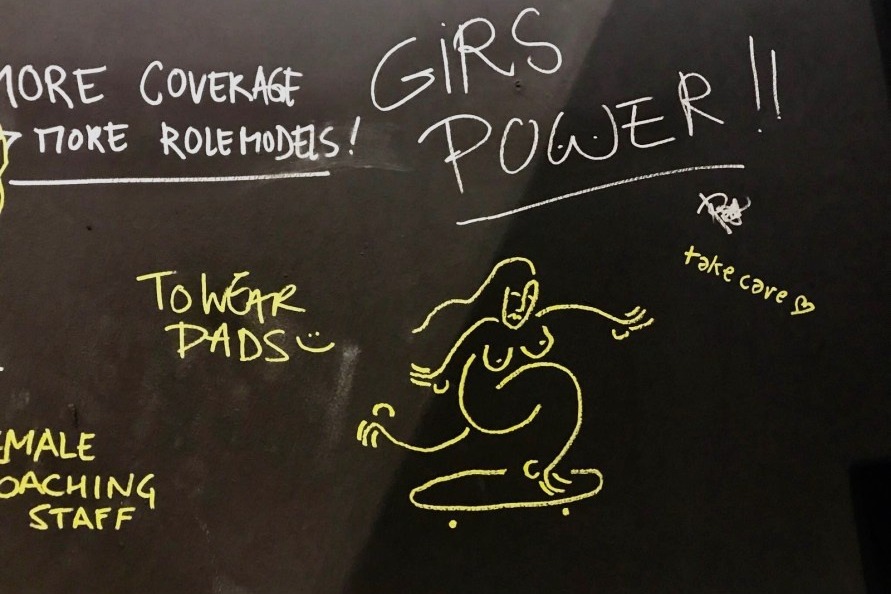 MORE COVERAGE
MORE ROLEMODELS!
GIRS
POWER!!
take care
TO WEAR
PADS :)
EMALE
OACHING
STAFF